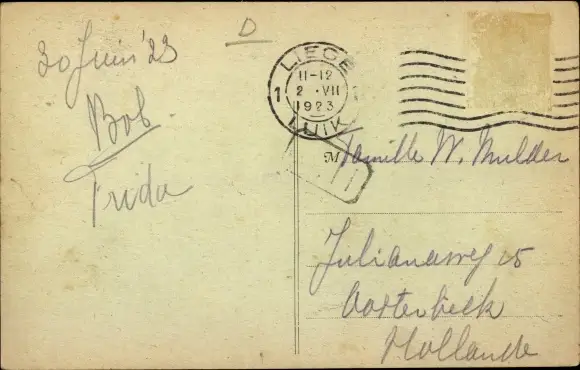 30 Juin '23
D
Bob
Frida
LIEGE
1 11-12 1
2 · VII
1923
LUIK
M
Familie W. Mulder
Julianaweg 15
Oosterbeek
Hollande